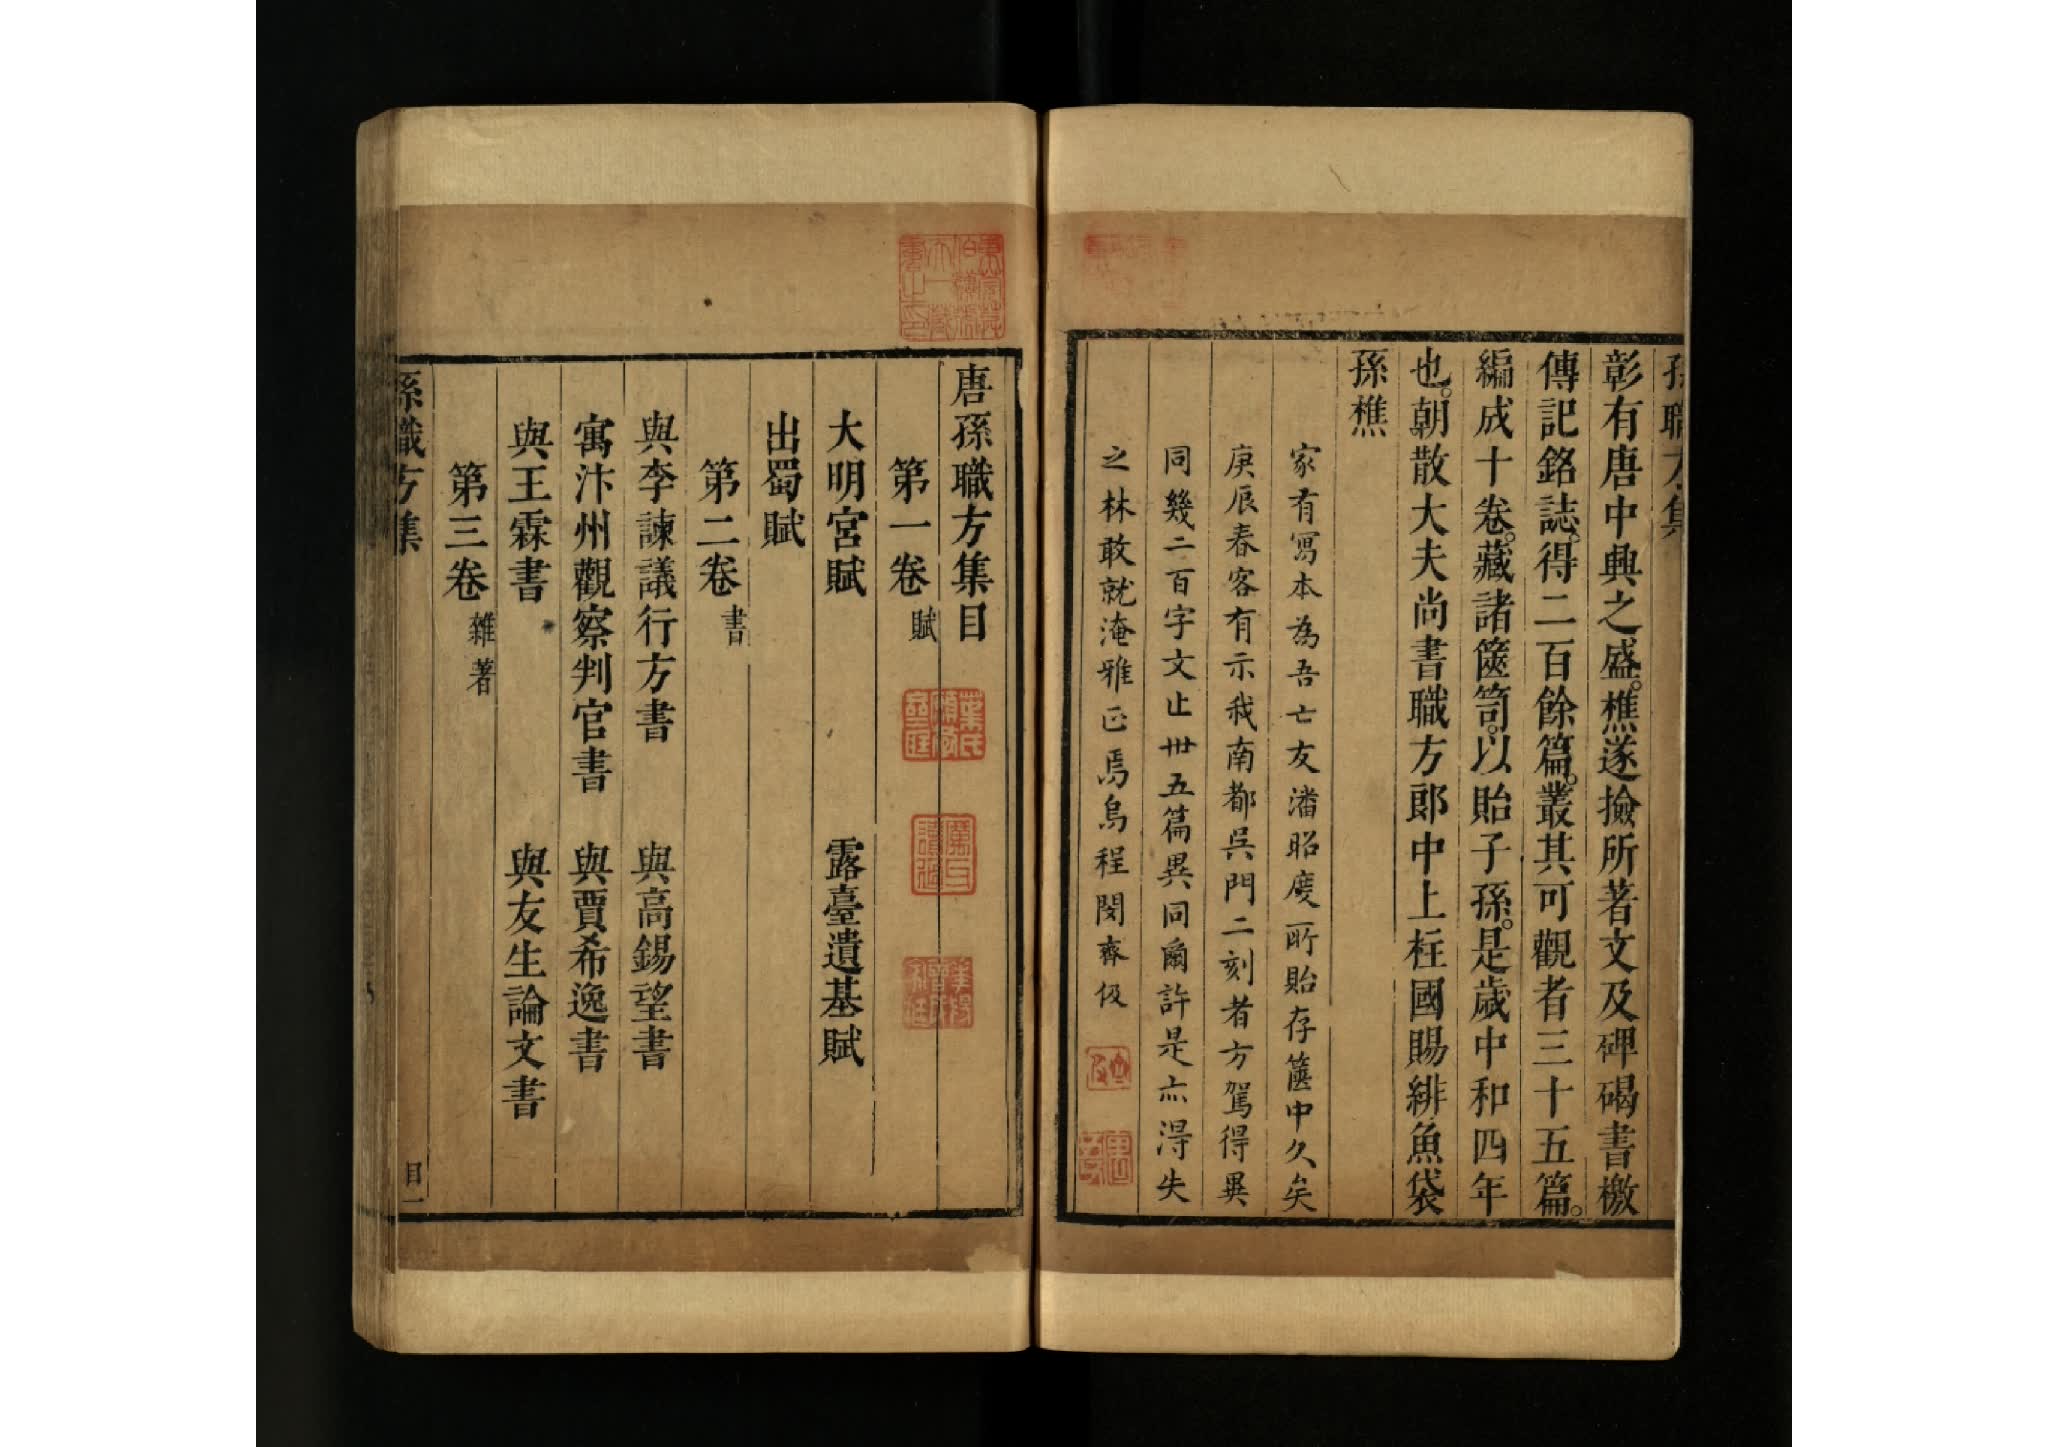 孫職方集
彰有唐中興之盛。樵遂撿所著文及碑碣書檄
傳記銘誌。得二百餘篇。叢其可觀者三十五篇。
編成十卷。藏諸篋笥。以貽子孫。是歲中和四年
也。朝散大夫尚書職方郎中上柱國賜緋魚袋
孫樵
家有寫本為吾亡友潘昭度所貽存篋中久矣
庚辰春客有示我南都吳門二刻者方駕得異
同幾二百字文止卅五篇異同爾許是亦得失
之林敢就淹雅正焉烏程閔齊伋
唐孫職方集目
第一卷 賦
大明宮賦 露臺遺基賦
出蜀賦
第二卷 書
與李諫議行方書 與高錫望書
寓汴州觀察判官書 與賈希逸書
與王霖書 與友生論文書
第三卷 雜著
孫職方集
目一